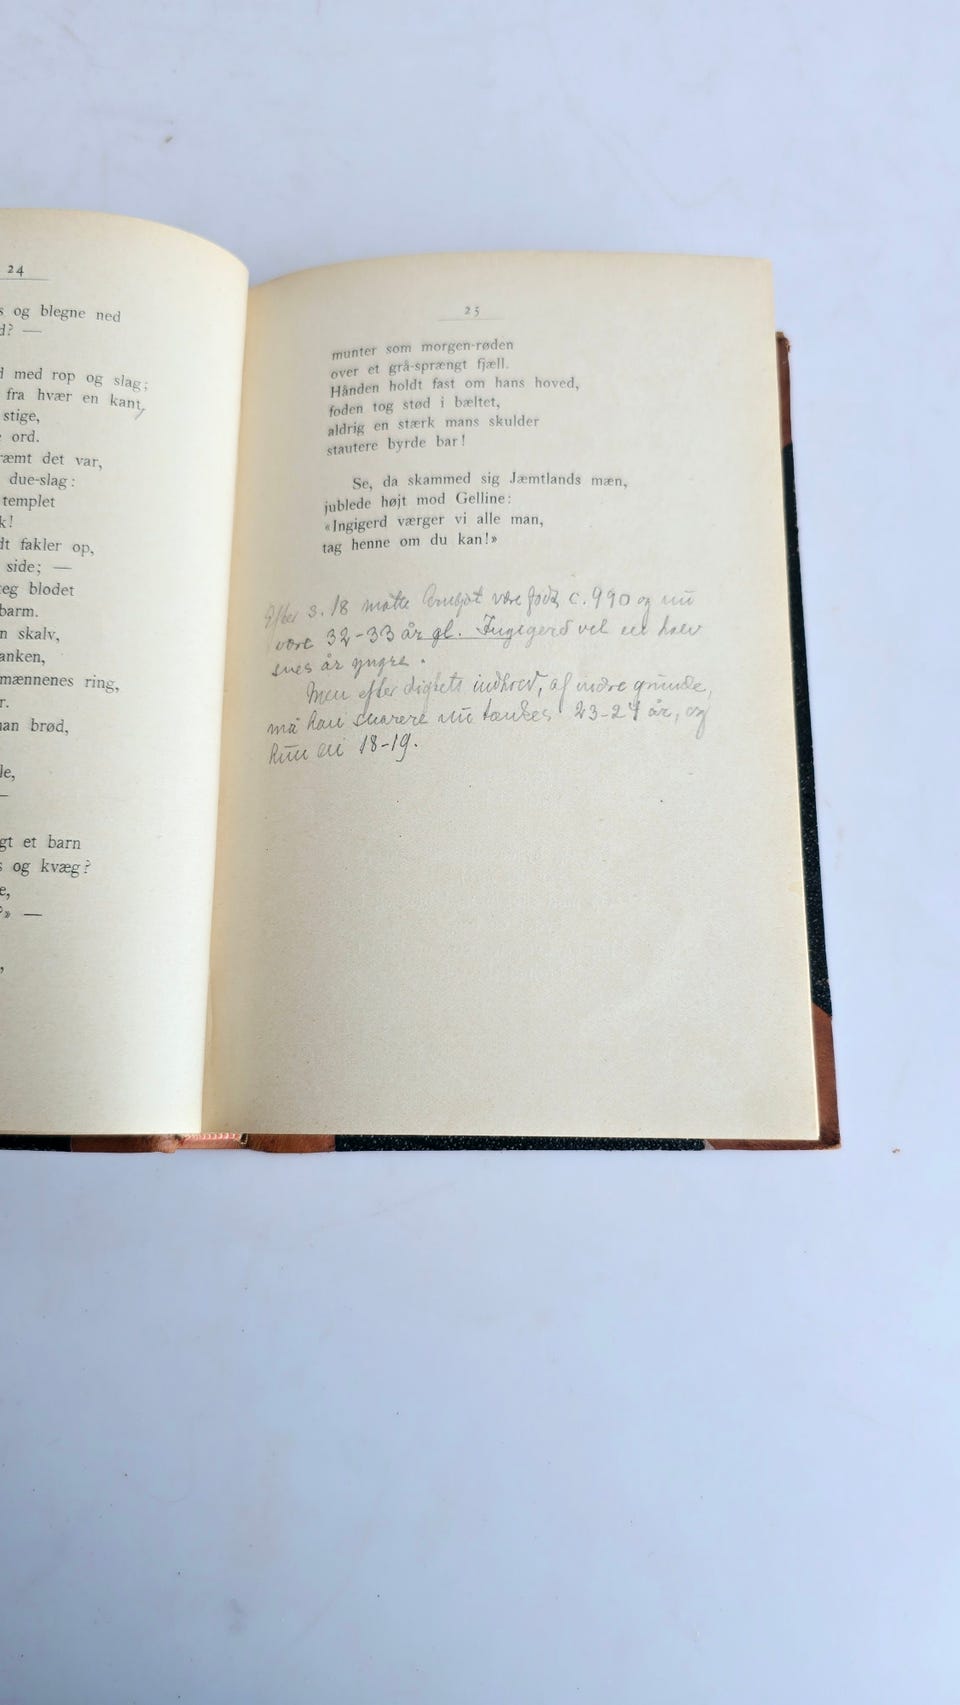 24
s og blegne ned
d? —
d med rop og slag;
fra hvær en kant,
stige,
ord.
ræmt det var,
due-slag:
templet
k!
dt fakler op,
side; —
eg blodet
barm.
n skalv,
anken,
mændenes ring,
r.
nan brød,
le,
—
gt et barn
s og kvæg?
e,
?» —
,
25
munter som morgen-røden
over et grå-sprængt fjæll.
Hånden holdt fast om hans hoved,
foden tog stød i bæltet,
aldrig en stærk mans skulder
stautere byrde bar!
Se, da skammed sig Jæmtlands mæn,
jublede højt mod Gelline:
«Ingigerd værger vi alle man,
tag henne om du kan!»
Efter s. 18 måtte Arnljot være født c. 990 og nu
være 32-33 år gl. Ingegerd vel en halv
snes år yngre.
Men efter digtets indhold, af indre grunde,
må han snarere nu tænkes 23-24 år, og
hun en 18-19.